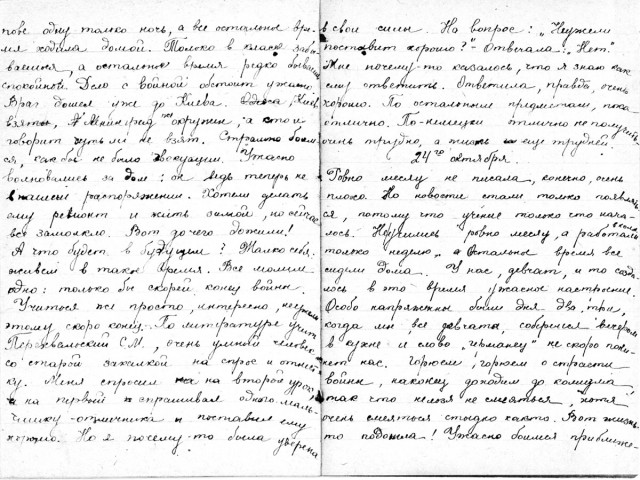 пове одну только ночь, а все остальное вре-
мя ходила домой. Только в классе забы-
вашися, а остальное время редко бываешь
спокойной. Дело с войной обстоит ужасно.
Враг дошел уже до Киева. Одесса, Киев
взяты, Ленинград окружен, а кто и
говорит чуть ли не взят. Страшно боим-
ся, как бы не было эвакуации. Ужасно
волновались за дом: он ведь теперь не
в нашем распоряжении. Хотели делать
ему ремонт и жить зимой, но сейчас
все замолкло. Вот до чего дожили!
А что будет в будущем? Жалко себя:
живем в такое время. Все молим
одно: только бы скорей конец войне.
Учиться же просто, интересно, неужели
этому скоро конец. По литературе учит
С.М., очень умный человек
со старой закалкой на спрос и отмет-
ку. Меня спросил на второй урок,
а на первый спрашивал одного маль-
чишку-отличника и поставил ему
Но я почему-то была уверена
в свои силы. На вопрос: „Неужели
поставит хорошо?" - Отвечала: „Нет".
Мне почему-то казалось, что я знаю как
ему ответить. Ответила, правда, очень
хорошо. По остальным предметам, пока
отлично. По-немецки отлично не получить
очень трудно, а жизнь еще трудней.
24го октября.
Ровно месяц не писала, конечно, очень
плохо. Но новости стали только появлять-
ся, потому что учение только что нача-
лось. Научились ровно месяц, а работали
только неделю, а остальное время все
сидели дома. У нас, девчат, и то созда-
лось в это время ужасное настроение.
Особо напряженные были дня два, три,
когда мы все девчата, соберемся вечером
в кухне и слово „германец" не скоро поки-
нет нас. Горюем, горюем о страсти
войны, наконец доходим до комизма,
так что нельзя не смеяться, хотя
очень смеяться стыдно как-то. Вот жизнь-
то подошла! Ужасно боимся приближе-